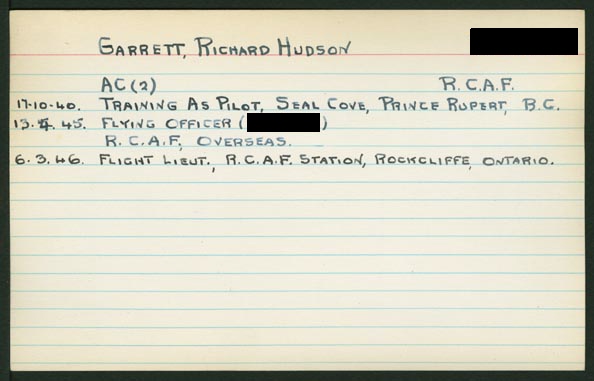 GARRETT, RICHARD HUDSON
AC(2) R.C.A.F.
17-10-40. TRAINING AS PILOT, SEAL COVE, PRINCE RUPERT, B.C.
13. 4. 45. FLYING OFFICER ( )
R.C.A.F, OVERSEAS.
6. 3. 46. FLIGHT LIEUT., R.C.A.F. STATION, ROCKCLIFFE, ONTARIO.